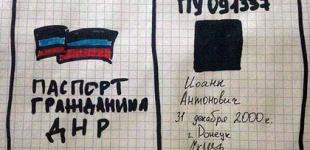 ПАСПОРТ
ГРАЖДАНИНА
ДНР
ПУ091337
Иоанн
Антонович
31 декабря 2000г.
г. Донецк